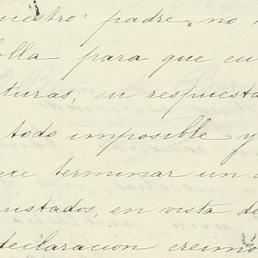 uestro padre no
olla para que en
turas, su respuesta
todo imposible y
ece terminar un
ustados, en vista de
declaracion creimo